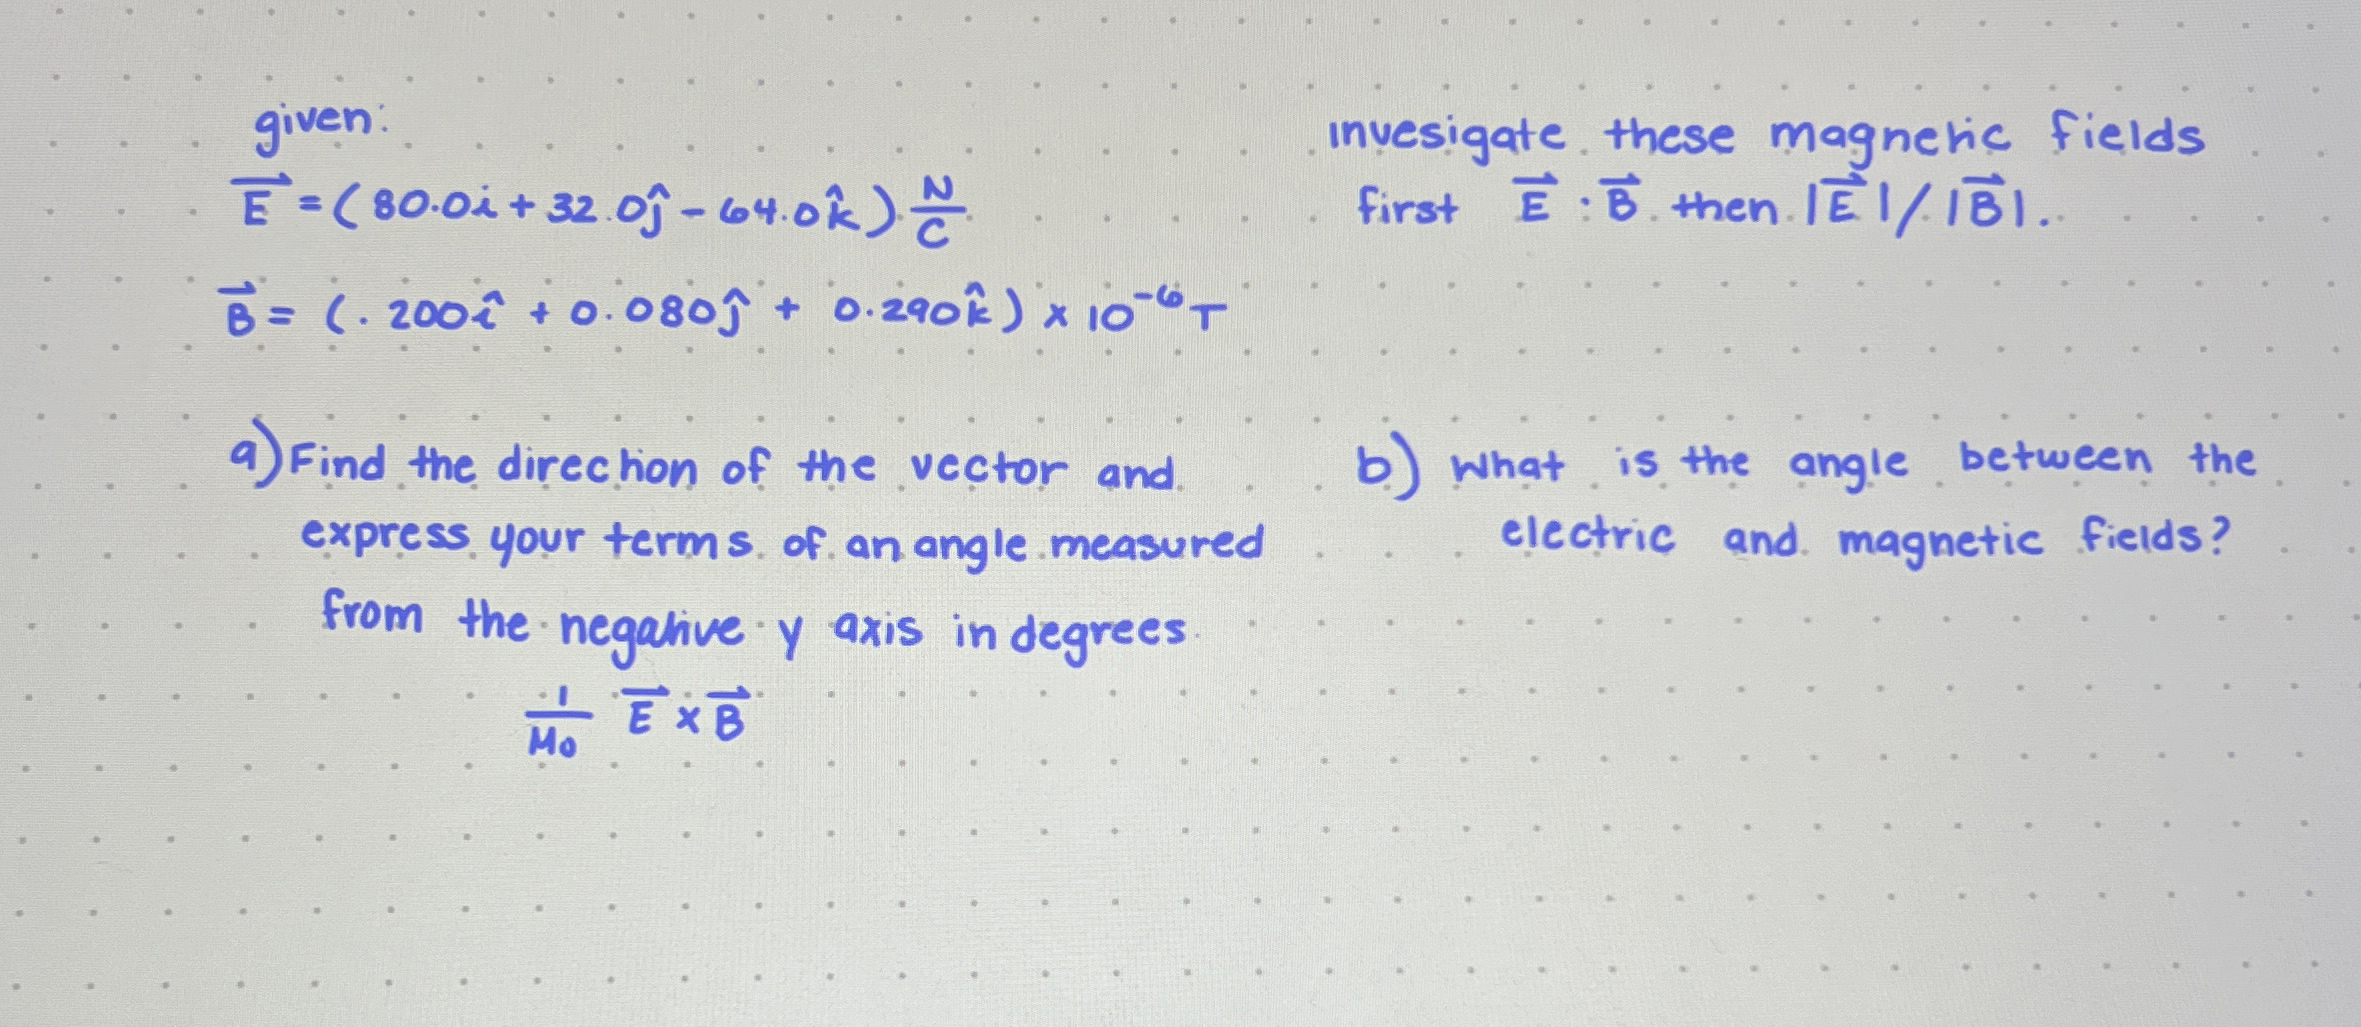 given:
E = (80.0i + 32.0ĵ - 64.0k̂) N/C
B = (.200î + 0.080ĵ + 0.290k̂) x 10⁻⁶ T
invesigate these magnetic fields
first E · B then |E| / |B|.
a) Find the direction of the vector and
express your terms of an angle measured
from the negative y axis in degrees
1/μ0 E x B
b) What is the angle between the
electric and magnetic fields?